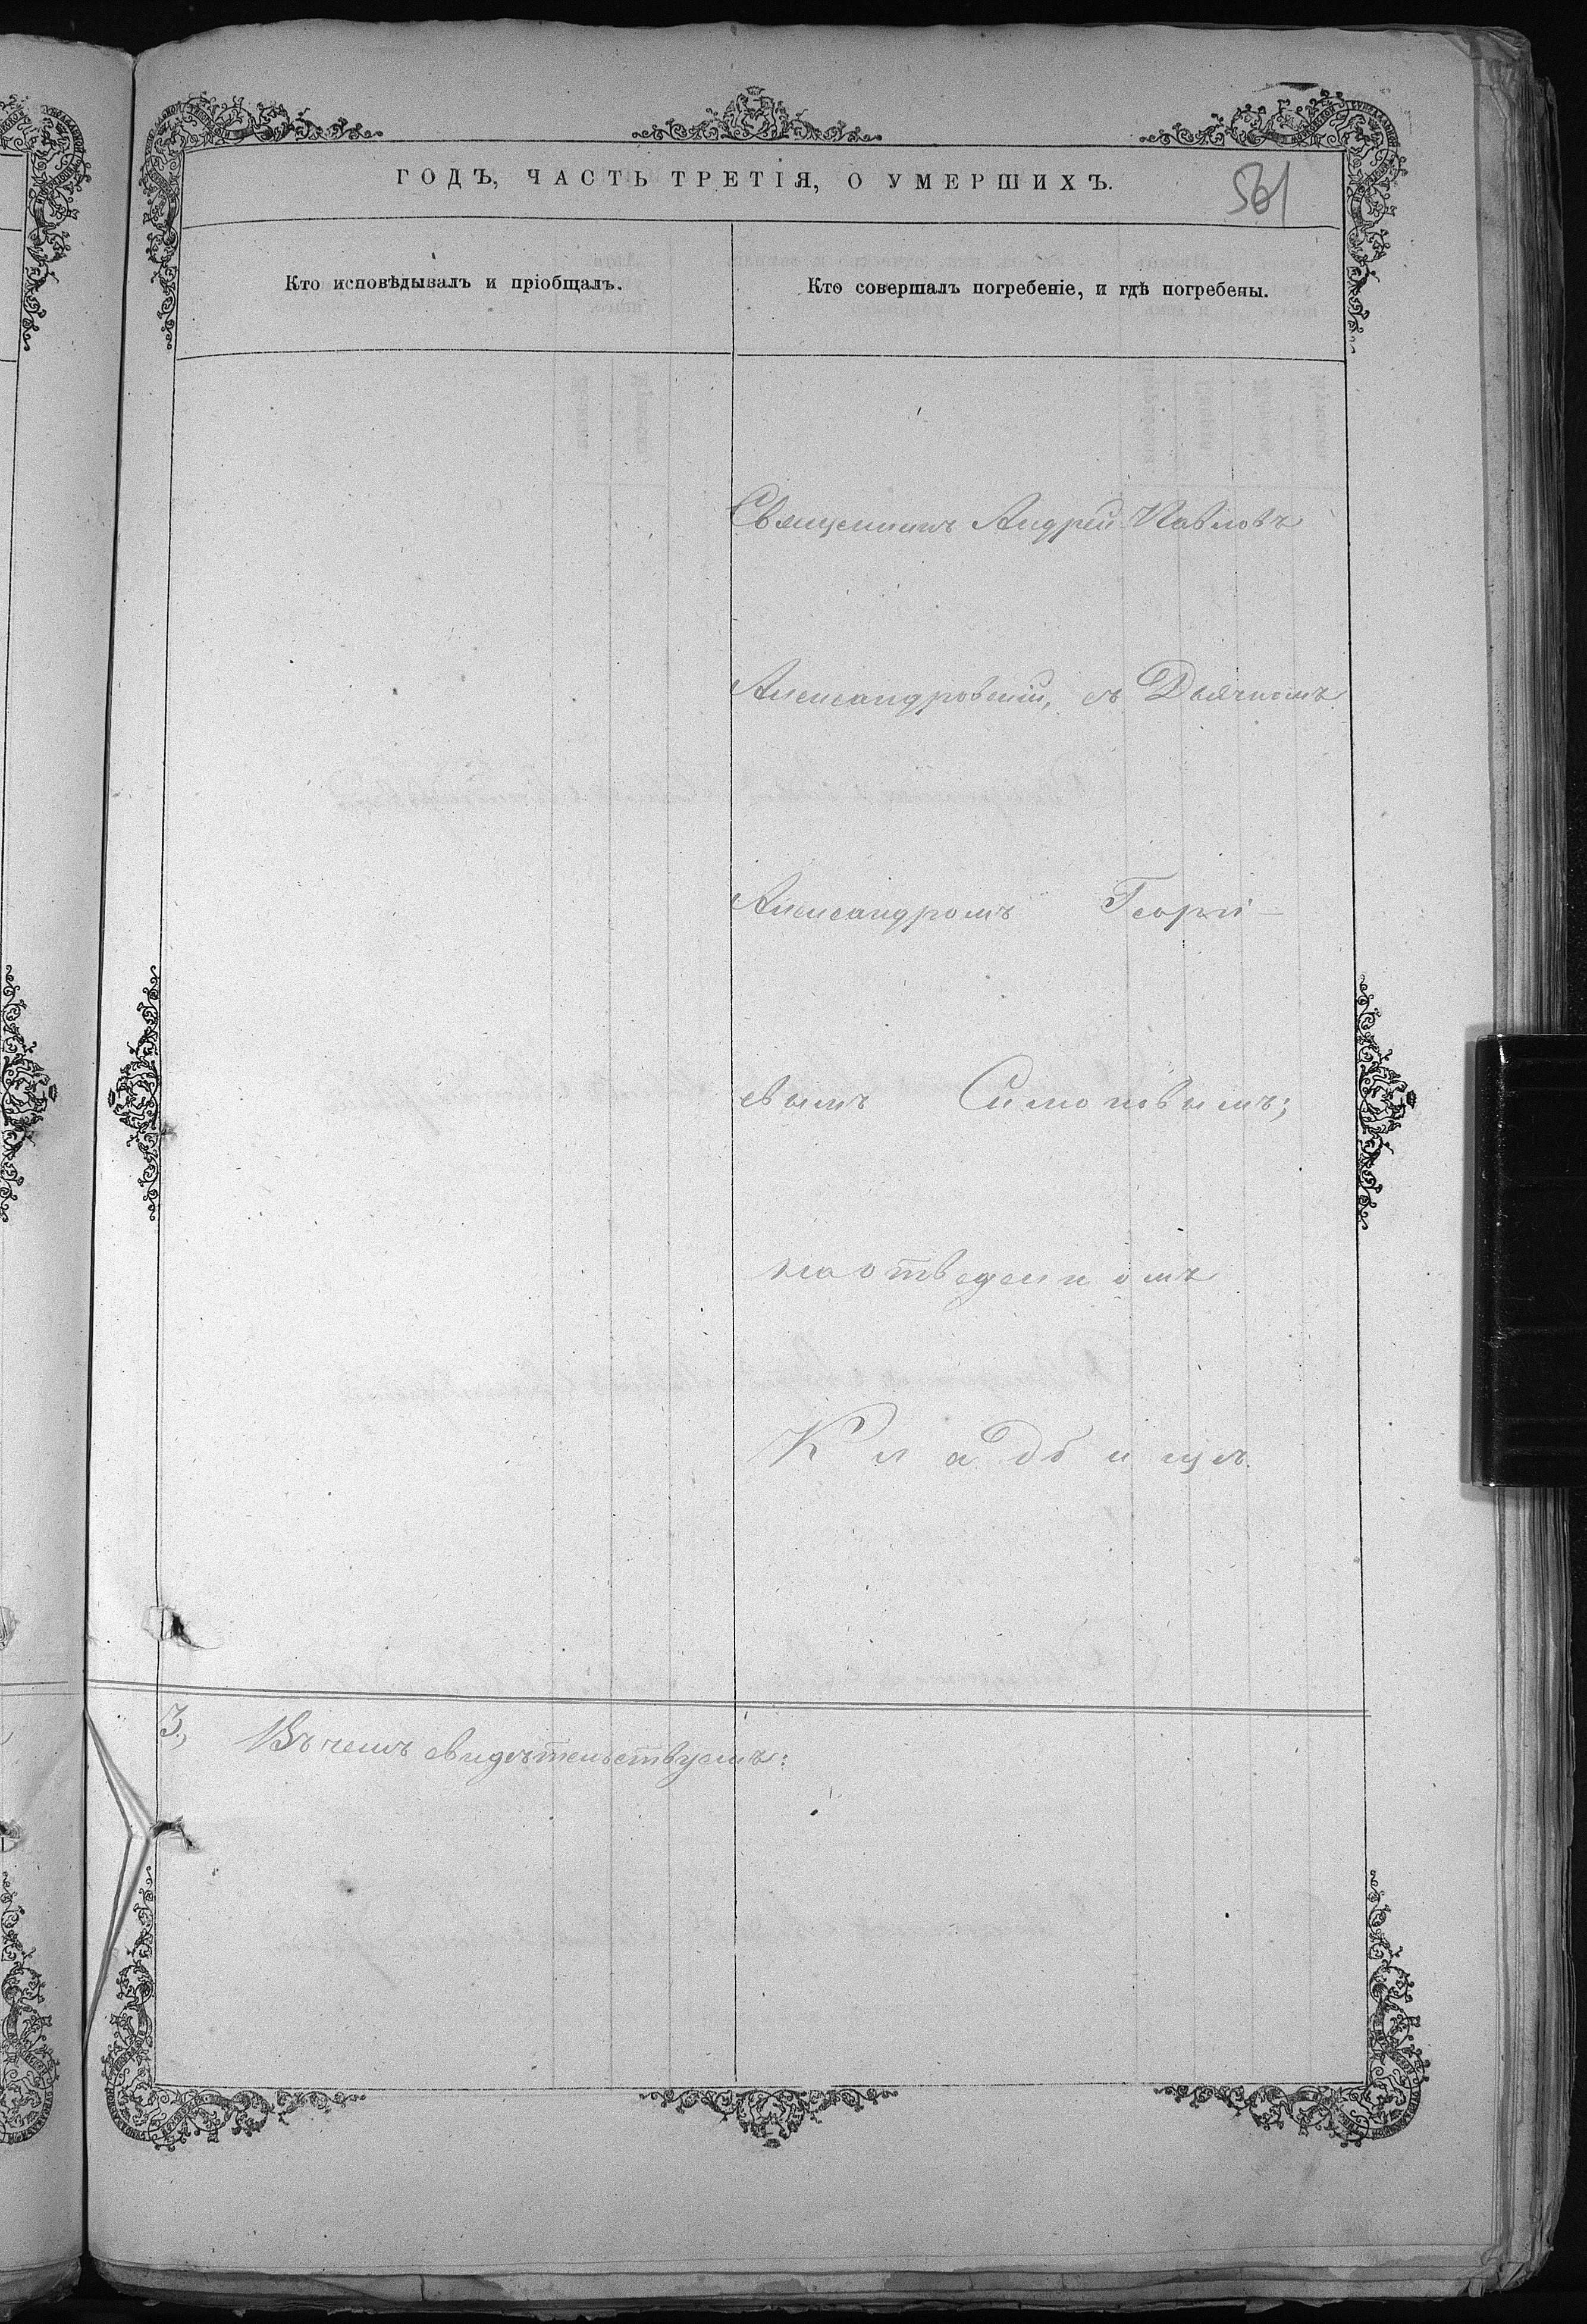 ГОДЪ, ЧАСТЬ ТРЕТІЯ, О УМЕРШИХЪ.
561
Кто исповѣдывалъ и пріобщалъ.
Кто совершалъ погребеніе, и гдѣ погребены.
Священникъ Андрей Павловъ
Александровскій, съ Дьячкомъ
Александромъ Георгі-
евымъ Симоновымъ;
на отведенномъ
Кладбищѣ.
3, Въ чемъ свидѣтельствуемъ: